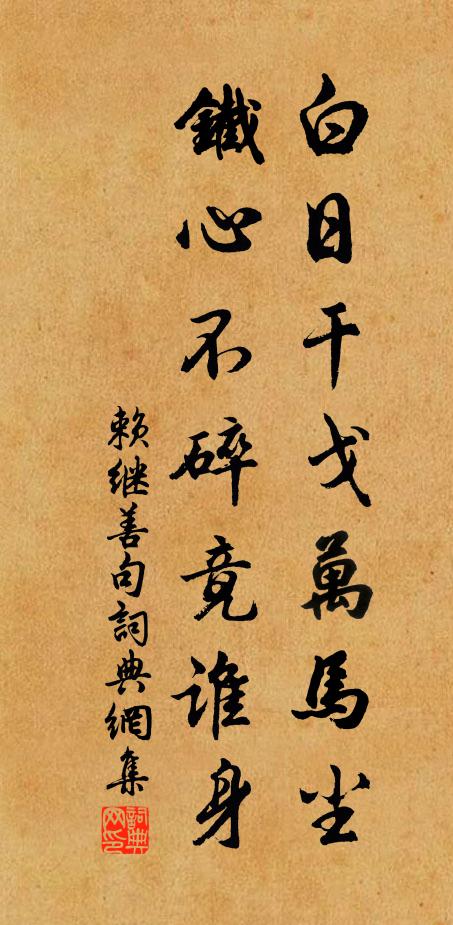 白日干戈萬馬尘
鐵心不碎竟誰身
賴继善句詞典網集
詞典网印